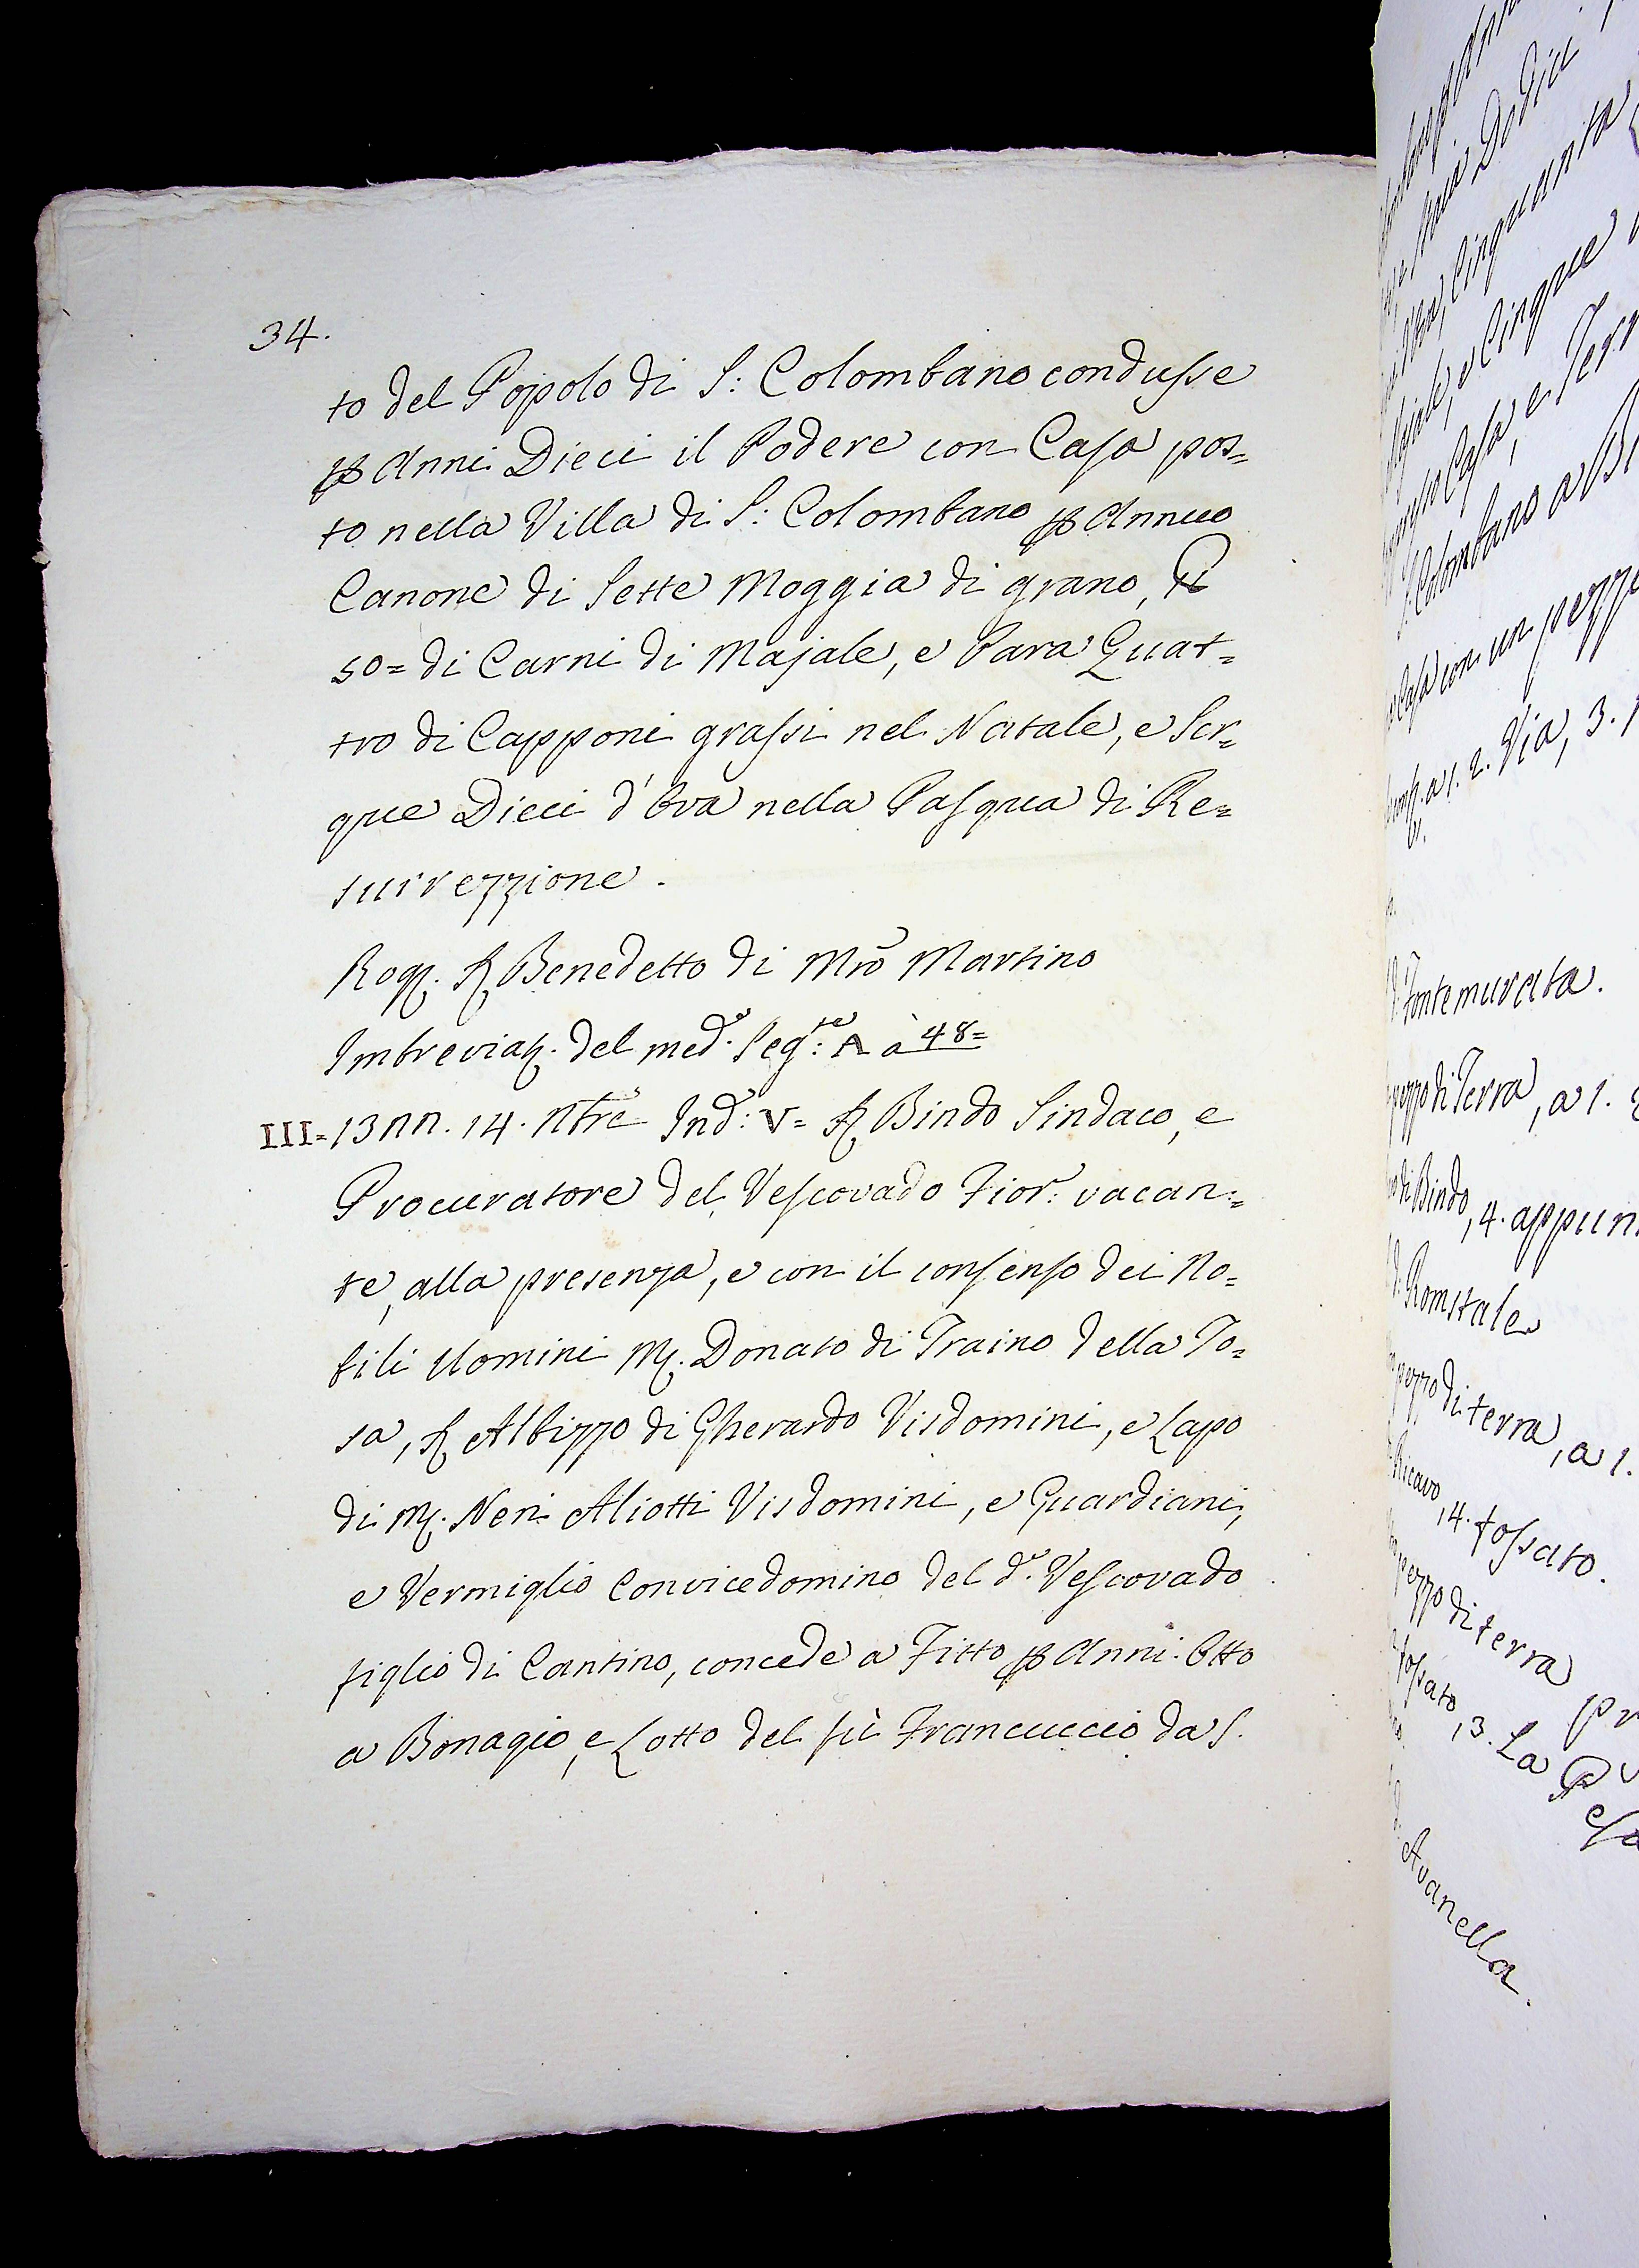 34.
to del Popolo di S: Colombano condusse
p Anni Dieci il Podere con Casa pos=
to nella Villa di S: Colombano p Annuo
Canone di Sette Moggia di grano, ℔
50= di Carni di Majale, e Para Quat=
tro di Capponi grassi nel Natale, e Ser=
que Dieci d'Ova nella Pasqua di Re=
surrezzione.
Rog. S. Benedetto di Mro Martino
Imbreviaz. del med.o Seg:re A à 48=
III=13nn. 14. Nbre Ind: V= S. Bindo Sindaco, e
Procuratore del Vescovado Fior: vacan=
te, alla presenza, e con il consenso dei No=
bili Uomini M. Donato di Traino della To=
sa, S. Albizzo di Gherardo Visdomini, e Lapo
di M. Neri Aliotti Visdomini, e Guardiani,
e Vermiglio Convicedomino del d.o Vescovado
figlio di Cantino, concede a Fitto p Anni Otto
a Bonagio, e Lotto del fù Francuccio da S.
Dodici
Cinquanta
e Cinque
Casa, e Terr
S: Colombano a Bi
Casa con un pezzo
a 1. 2. Via, 3.
Fontemurata.
pezzo di Terra, a 1. 2
di Bindo, 4. appun
Romitale
pezzo di terra, a 1.
Ricavo, 4. fossato.
pezzo di terra
fossato, 3. La Pesa
Avanella.